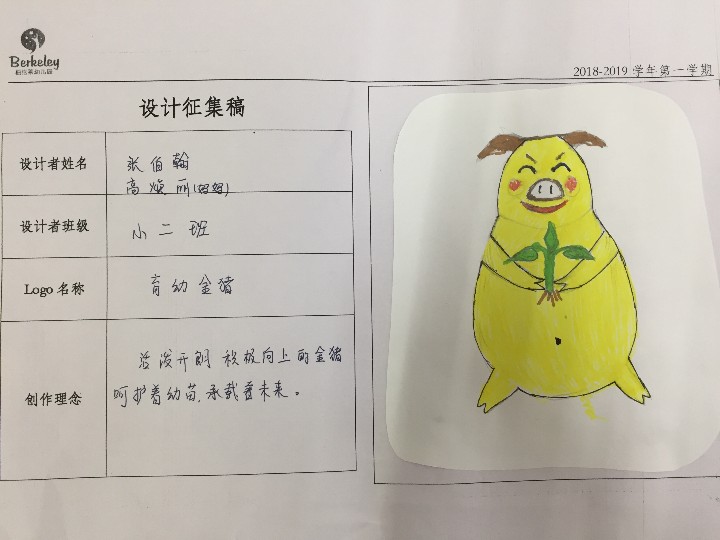 Berkeley
2018-2019 学年第一学期
设计征集稿
设计者姓名
张伯翰
高焕丽(妈妈)
设计者班级
小二班
Logo 名称
育幼金猪
创作理念
活泼开朗 积极向上的金猪
呵护着幼苗,承载着未来。